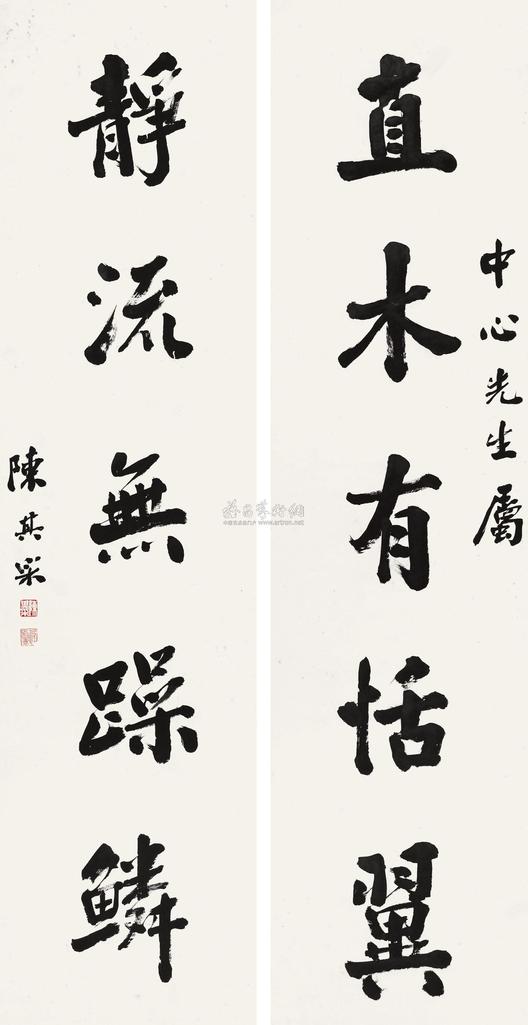 中心先生屬
直木有恬翼
靜流無躁鱗
陳其采
雅昌藝術網
www.artron.net